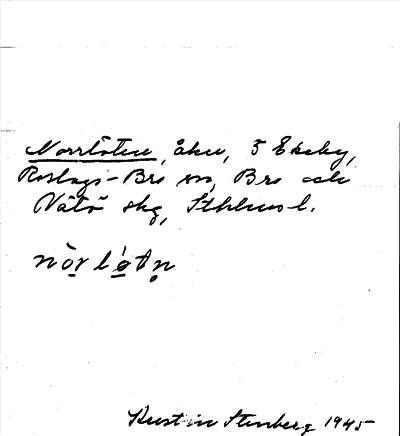 Norrlöten, åker, 5 Ekeby,
Roslags-Bro sn, Bro och
Vätö skg, Sthlms l.
nòrlǿtn̥
Kerstin Stenberg 1945